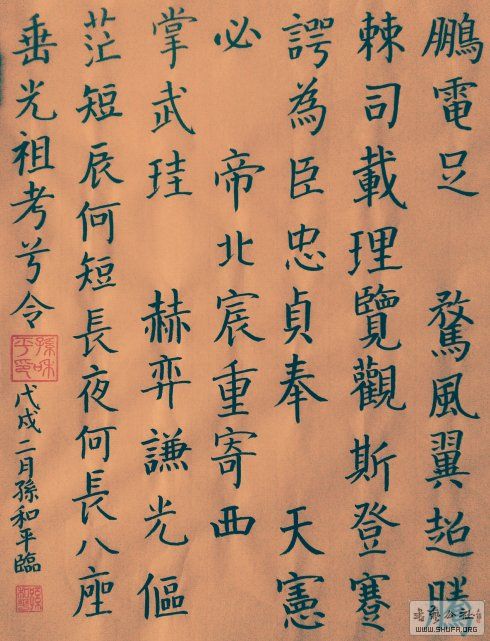 鵬電足 騖風翼超騰
棘司載理覽觀斯登蹇
諤為臣忠貞奉 天憲
必 帝北宸重寄西
掌武珪 赫弈謙光傴
茫短辰何短長夜何長八座
垂光祖考兮令
戊戌二月孫和平臨
孫和平印
WWW.SHUFA.ORG